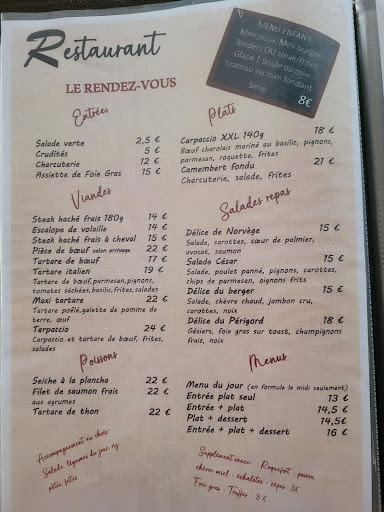 Restaurant
LE RENDEZ-VOUS
MENU ENFANT
Mini pizza, Mini burger
tenders OU steak/frites
Glace 1 boule ou mini
tiramisu ou mini fondant
Sirop
8€
Entrées
Salade verte 2,5 €
Crudités 5 €
Charcuterie 12 €
Assiette de Foie Gras 15 €
Viandes
Steak haché frais 180g 14 €
Escalope de volaille 14 €
Steak haché frais à cheval 15 €
Pièce de bœuf selon arrivage 22 €
Tartare de bœuf 17 €
Tartare italien 19 €
Tartare de bœuf,parmesan,pignons,
tomates séchées,basilic,frites,salades
Maxi tartare 22 €
Tartare poêlé,galette de pomme de
terre, œuf
Tarpaccio 24 €
Carpaccio et tartare de bœuf, frites,
salades
Poissons
Seiche à la plancha 22 €
Filet de saumon frais 22 €
aux agrumes
Tartare de thon 22 €
Accompagnement au choix:
Salade, légumes du jour, riz
pâtes, frites
Plats
Carpaccio XXL 140g 18 €
Bœuf charolais mariné au basilic, pignons,
parmesan, roquette, frites
Camembert fondu 21 €
Charcuterie, salade, frites
Salades repas
Délice de Norvège 15 €
Salade, carottes, cœur de palmier,
avocat, saumon
Salade César 15 €
Salade, poulet pané, pignons, carottes,
chips de parmesan, oignons frits
Délice du berger 15 €
Salade, chèvre chaud, jambon cru,
carottes, noix
Délice du Périgord 18 €
Gésiers, foie gras sur toast, champignons
frais, noix
Menus
Menu du jour (en formule le midi seulement)
Entrée plat seul 13 €
Entrée + plat 14,5 €
Plat + dessert 14,5€
Entrée + plat + dessert 16 €
Supplément sauce : Roquefort - poivre
chèvre miel - échalotes - cèpes 3€
Foie gras - Truffes 5 €